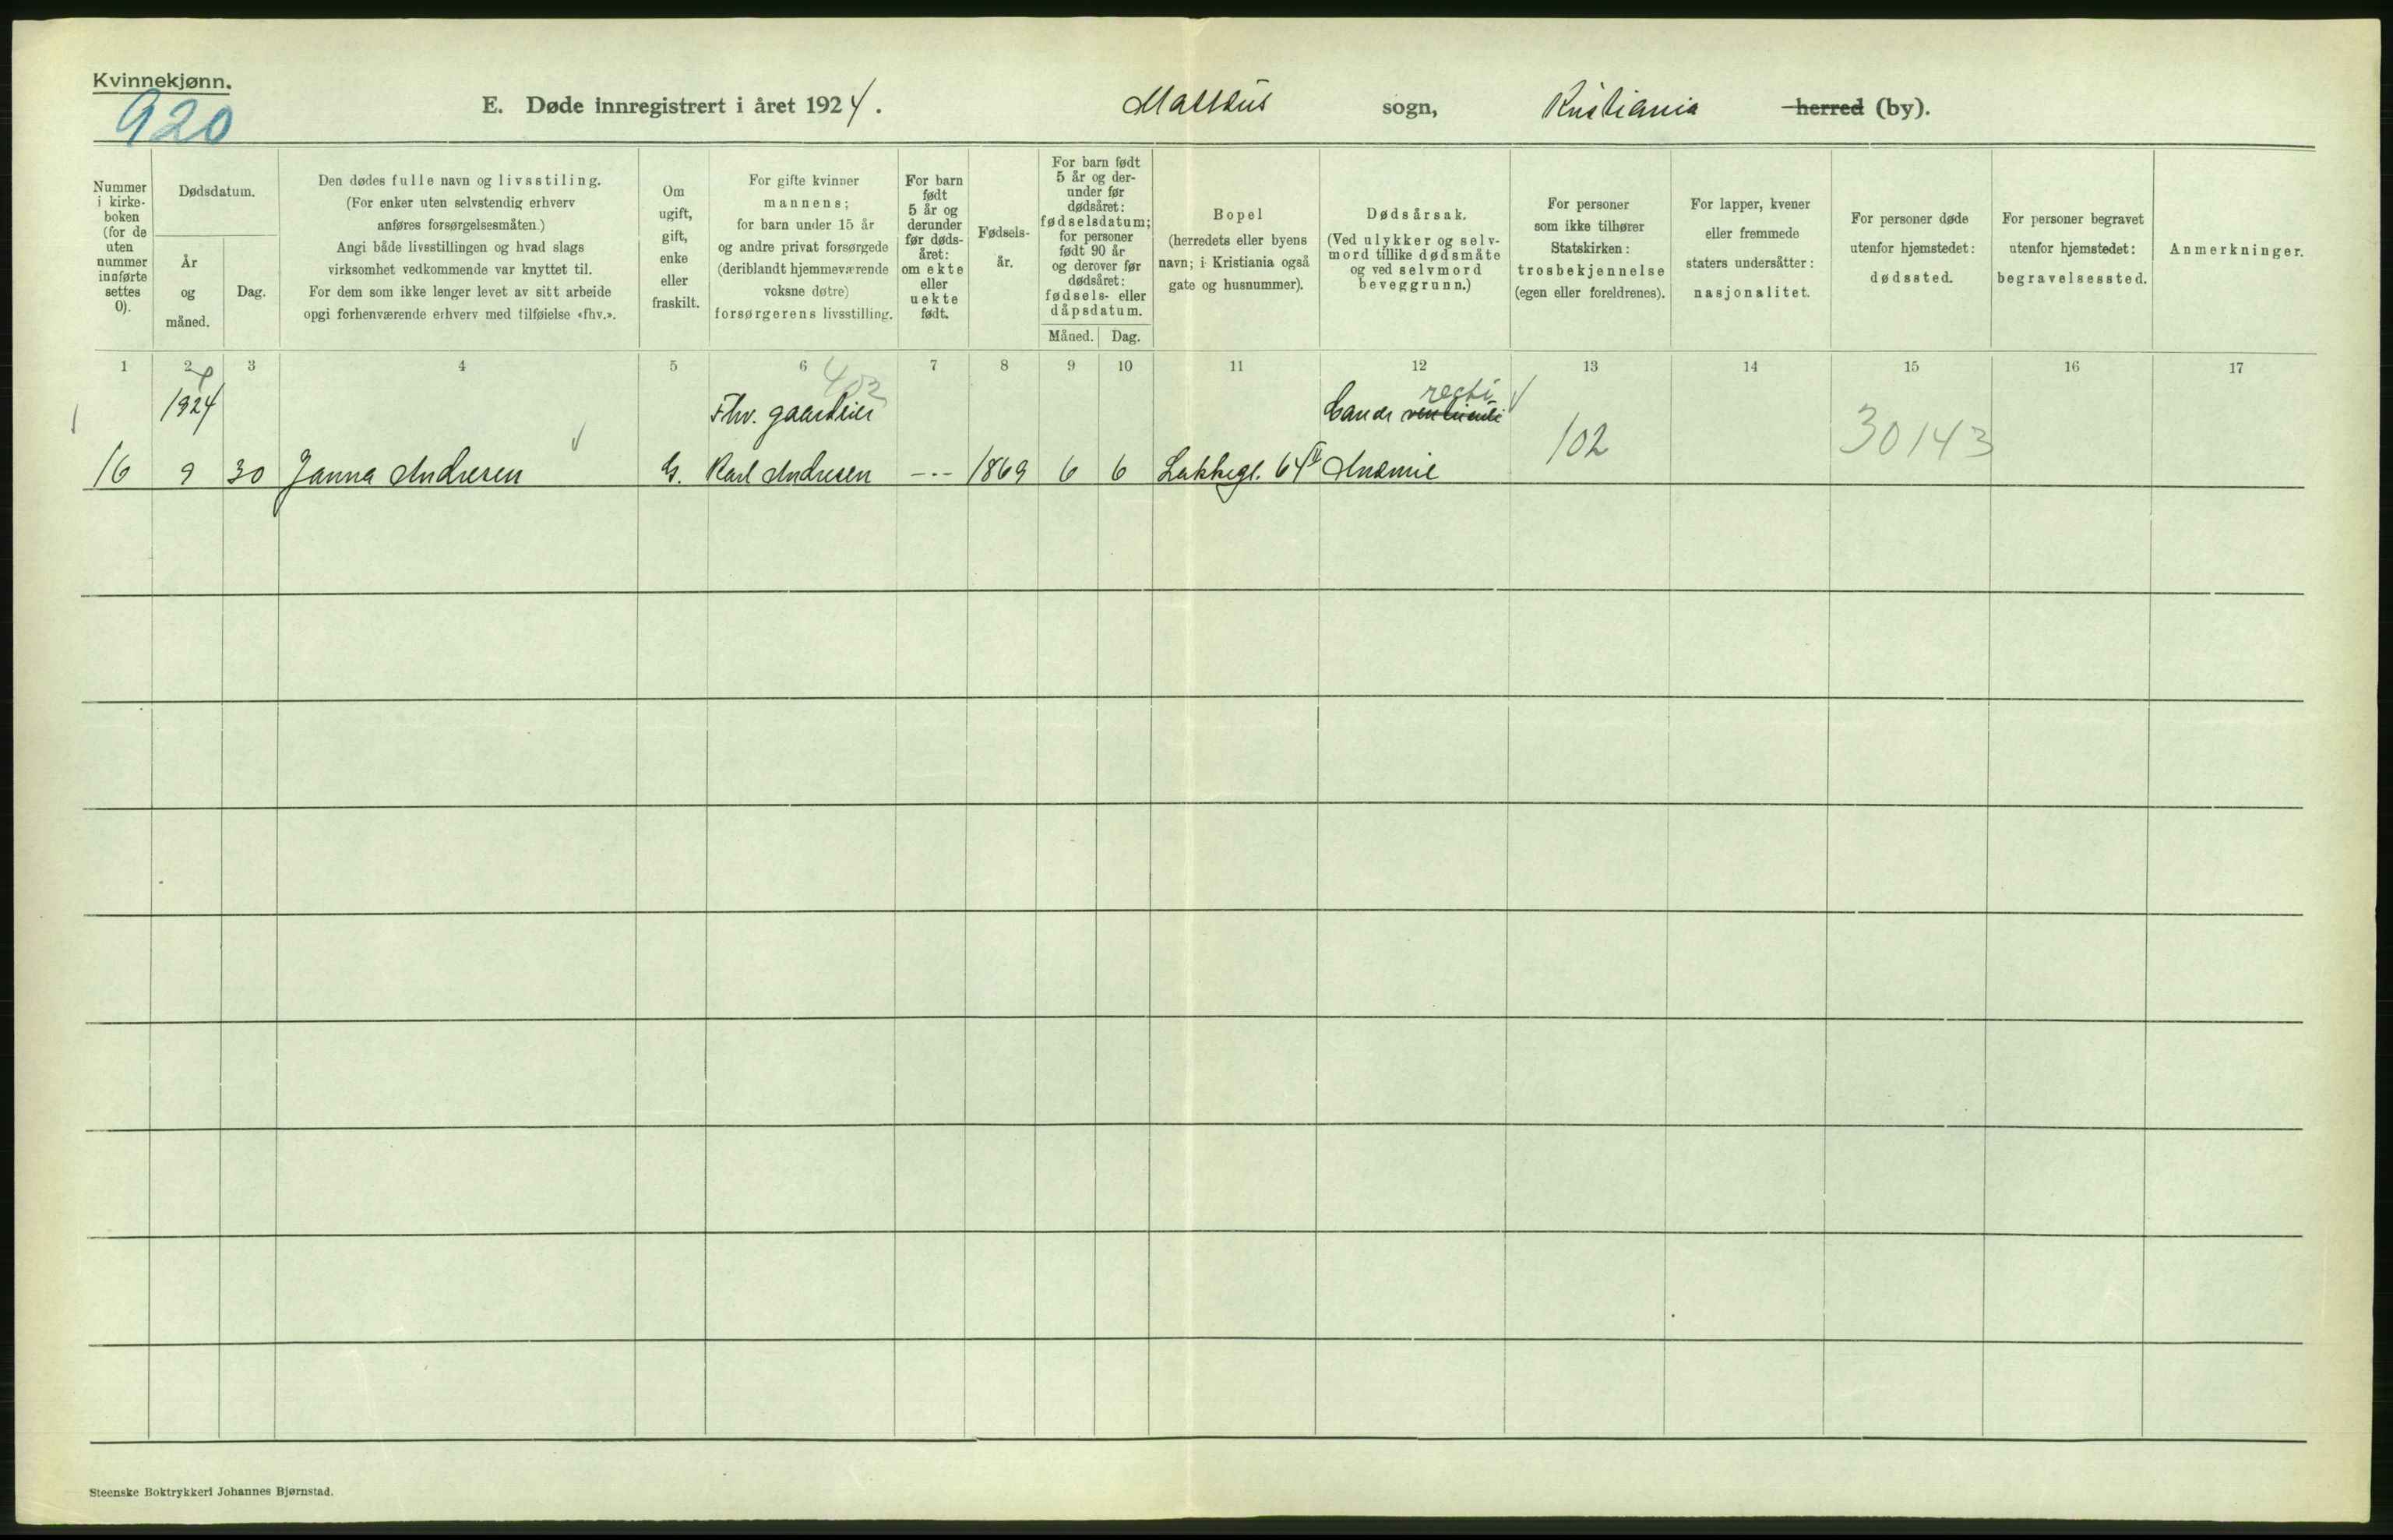 Kvinnekjønn.
920
E. Døde innregistrert i året 1924.
Mattëus sogn, Kristiania herred (by).
Nummer i kirke-
boken
(for de
uten
nummer
innførte
settes
0).
Dødsdatum.
År
og
måned.
Dag.
Den dødes fulle navn og livsstiling.
(For enker uten selvstendig erhverv
anføres forsørgelsesmåten.)
Angi både livsstillingen og hvad slags
virksomhet vedkommende var knyttet til.
For dem som ikke lenger levet av sitt arbeide
opgi forhenværende erhverv med tilføielse «fhv.».
Om
ugift,
gift,
enke
eller
fraskilt.
For gifte kvinner
mannens;
for barn under 15 år
og andre privat forsørgede
(deriblandt hjemmeværende
voksne døtre)
forsørgerens livsstilling.
For barn
født
5 år og
derunder
før døds-
året:
om ekte
eller
uekte
født.
Fødsels-
år.
For barn født
5 år og der-
under før
dødsåret:
fødselsdatum;
for personer
født 90 år
og derover før
dødsåret:
fødsels- eller
dåpsdatum.
Måned. Dag.
Bopel
(herredets eller byens
navn; i Kristiania også
gate og husnummer).
Dødsårsak.
(Ved ulykker og selv-
mord tillike dødsmåte
og ved selvmord
beveggrunn.)
For personer
som ikke tilhører
Statskirken:
trosbekjennelse
(egen eller foreldrenes).
For lapper, kvener
eller fremmede
staters undersåtter:
nasjonalitet.
For personer døde
utenfor hjemstedet:
dødssted.
For personer begravet
utenfor hjemstedet:
begravelsessted.
Anmerkninger.
1 2 3 4 5 6 7 8 9 10 11 12 13 14 15 16 17
403
recti
1924 Fhv. gaardeier Cancr ventriculi
102 30143
16 9 30 Janna Andresen G. Karl Andresen --- 1869 6 6 Lakkegt. 64 Anæmie
Steenske Boktrykkeri Johannes Bjørnstad.